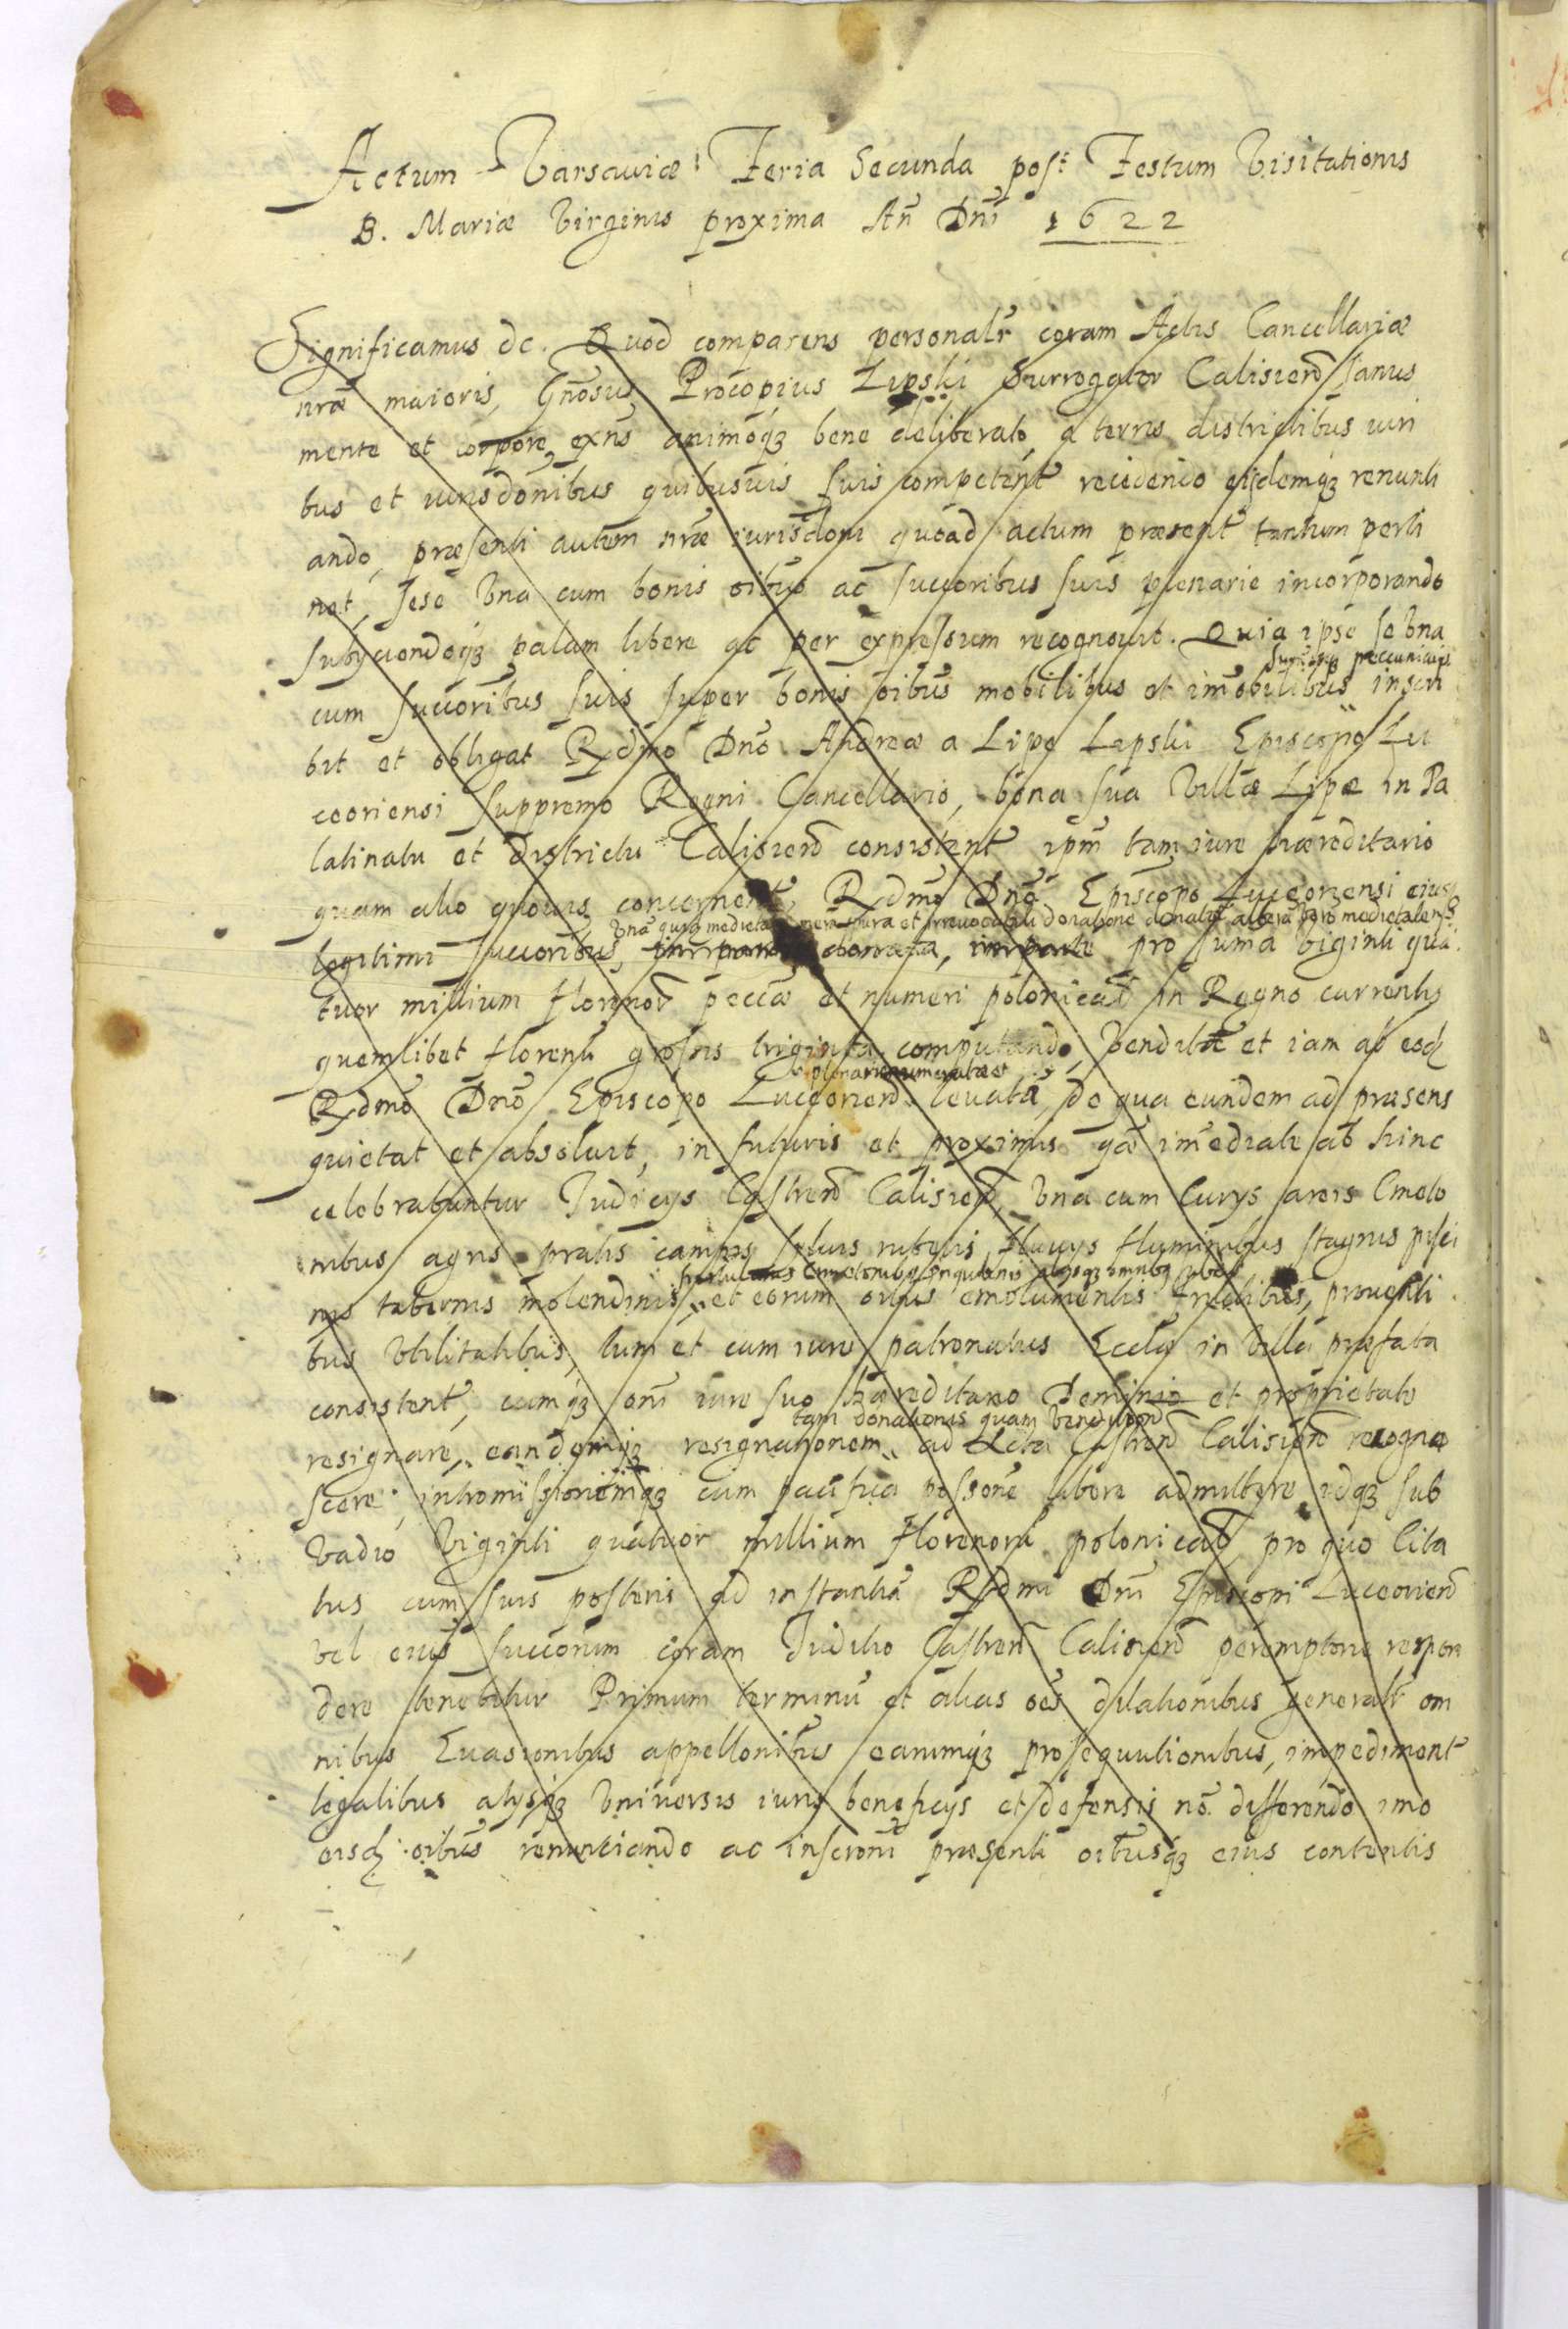 Actum Varsaviæ Feria Secunda post Festum Visitationis
B. Mariæ Virginis proxima Añ Dñi 1622
Significamus &c. Quod comparens personalr coram Actis Cancellariæ
nræ maioris, Gñosus Procopius Lipski Surrogator Calisień sanus
mente et corpore exñs animoqз bene deliberato a terris districtibus iuri
bus et iurisdonibus quibusuis suis competent recedendo eisdemqз renunti
ando, præsenti autem nræ iurisdoni quoad actum præsent tantum perti
net, sese Vna cum bonis oibus ac succoribus suis plenarie incorporando
subyciendoqз palam libere ac per expressum recognouit. Quia ipse se Vna
sumisqз peccuniarys
cum succoribus suis super bonis oibus mobilibus et imobilibus inscri
bit et obligat Rdmo Dno Andreæ a Lipe Lipski Episcopo Lu
ceoriensi suppremo Regni Cancellario, bona sua Villæ Lipe in Pa
latinatu et districtu Calisień consistent ipm tam iure hæreditario
quam alio quouis concernent, Rdmo Dno Episcopo Luceoriensi eiusqз
Vnã quidem medietatem mera pura et irreuocabili donatione donatã alterã vero medietatem
legitimi succoribus, in parte donata, in parte pro suma Viginti qua
tuor millium florenor pecciæ et numeri polonical in Regno currentis
quemlibet florenũ grossis triginta computando, Venditæ et iam ab eod
plenarie numeratæ et
Rdmo Dno Episcopo Luceorień leuatã, de qua eundem ad præsens
quietat et absoluit, in futuris et proximis quæ imediate ab hinc
celebrabuntur Iudicys Castreń Calisień, Vna cum Curys areis Cmeto
nibus agris pratis campis syluis rubetis, fluuys fluminibus stagnis pisci
nis tabernis molendinis, et eorum oibus emolumentis prouenti
bus Vtilitatibus, tum et cum iure patronatus Eccliæ in Villa præfata
consistent, cumqз omi iure suo hæreditario Dominio et proprietate
tam donationis quam Venditionis
resignare, eandemqз resignationem ad Acta Castreń Calisień recogno
scere, intromissionemqз cum pacifica possone libere admittere idqз sub
Vadio Viginti quatuor millium florenorũ polonical, pro quo Cita
tus cum suis posteris ad instantiã Rdmi Dni Episcopi Luceorień
vel eius succorum coram Iuditio Castreń Calisień peremptorie respon
dere tenebitur Primum terminũ et alias oes dilationibus generalr om
nibus Euasionibus appellonibus earumqз prosequutionibus, impediment
legalibus alysqз Vniversis iuris beneficys et defensis nõ differendo imo
eisd oibus renunciando ac inscrioni præsenti oibusqз eius contentis